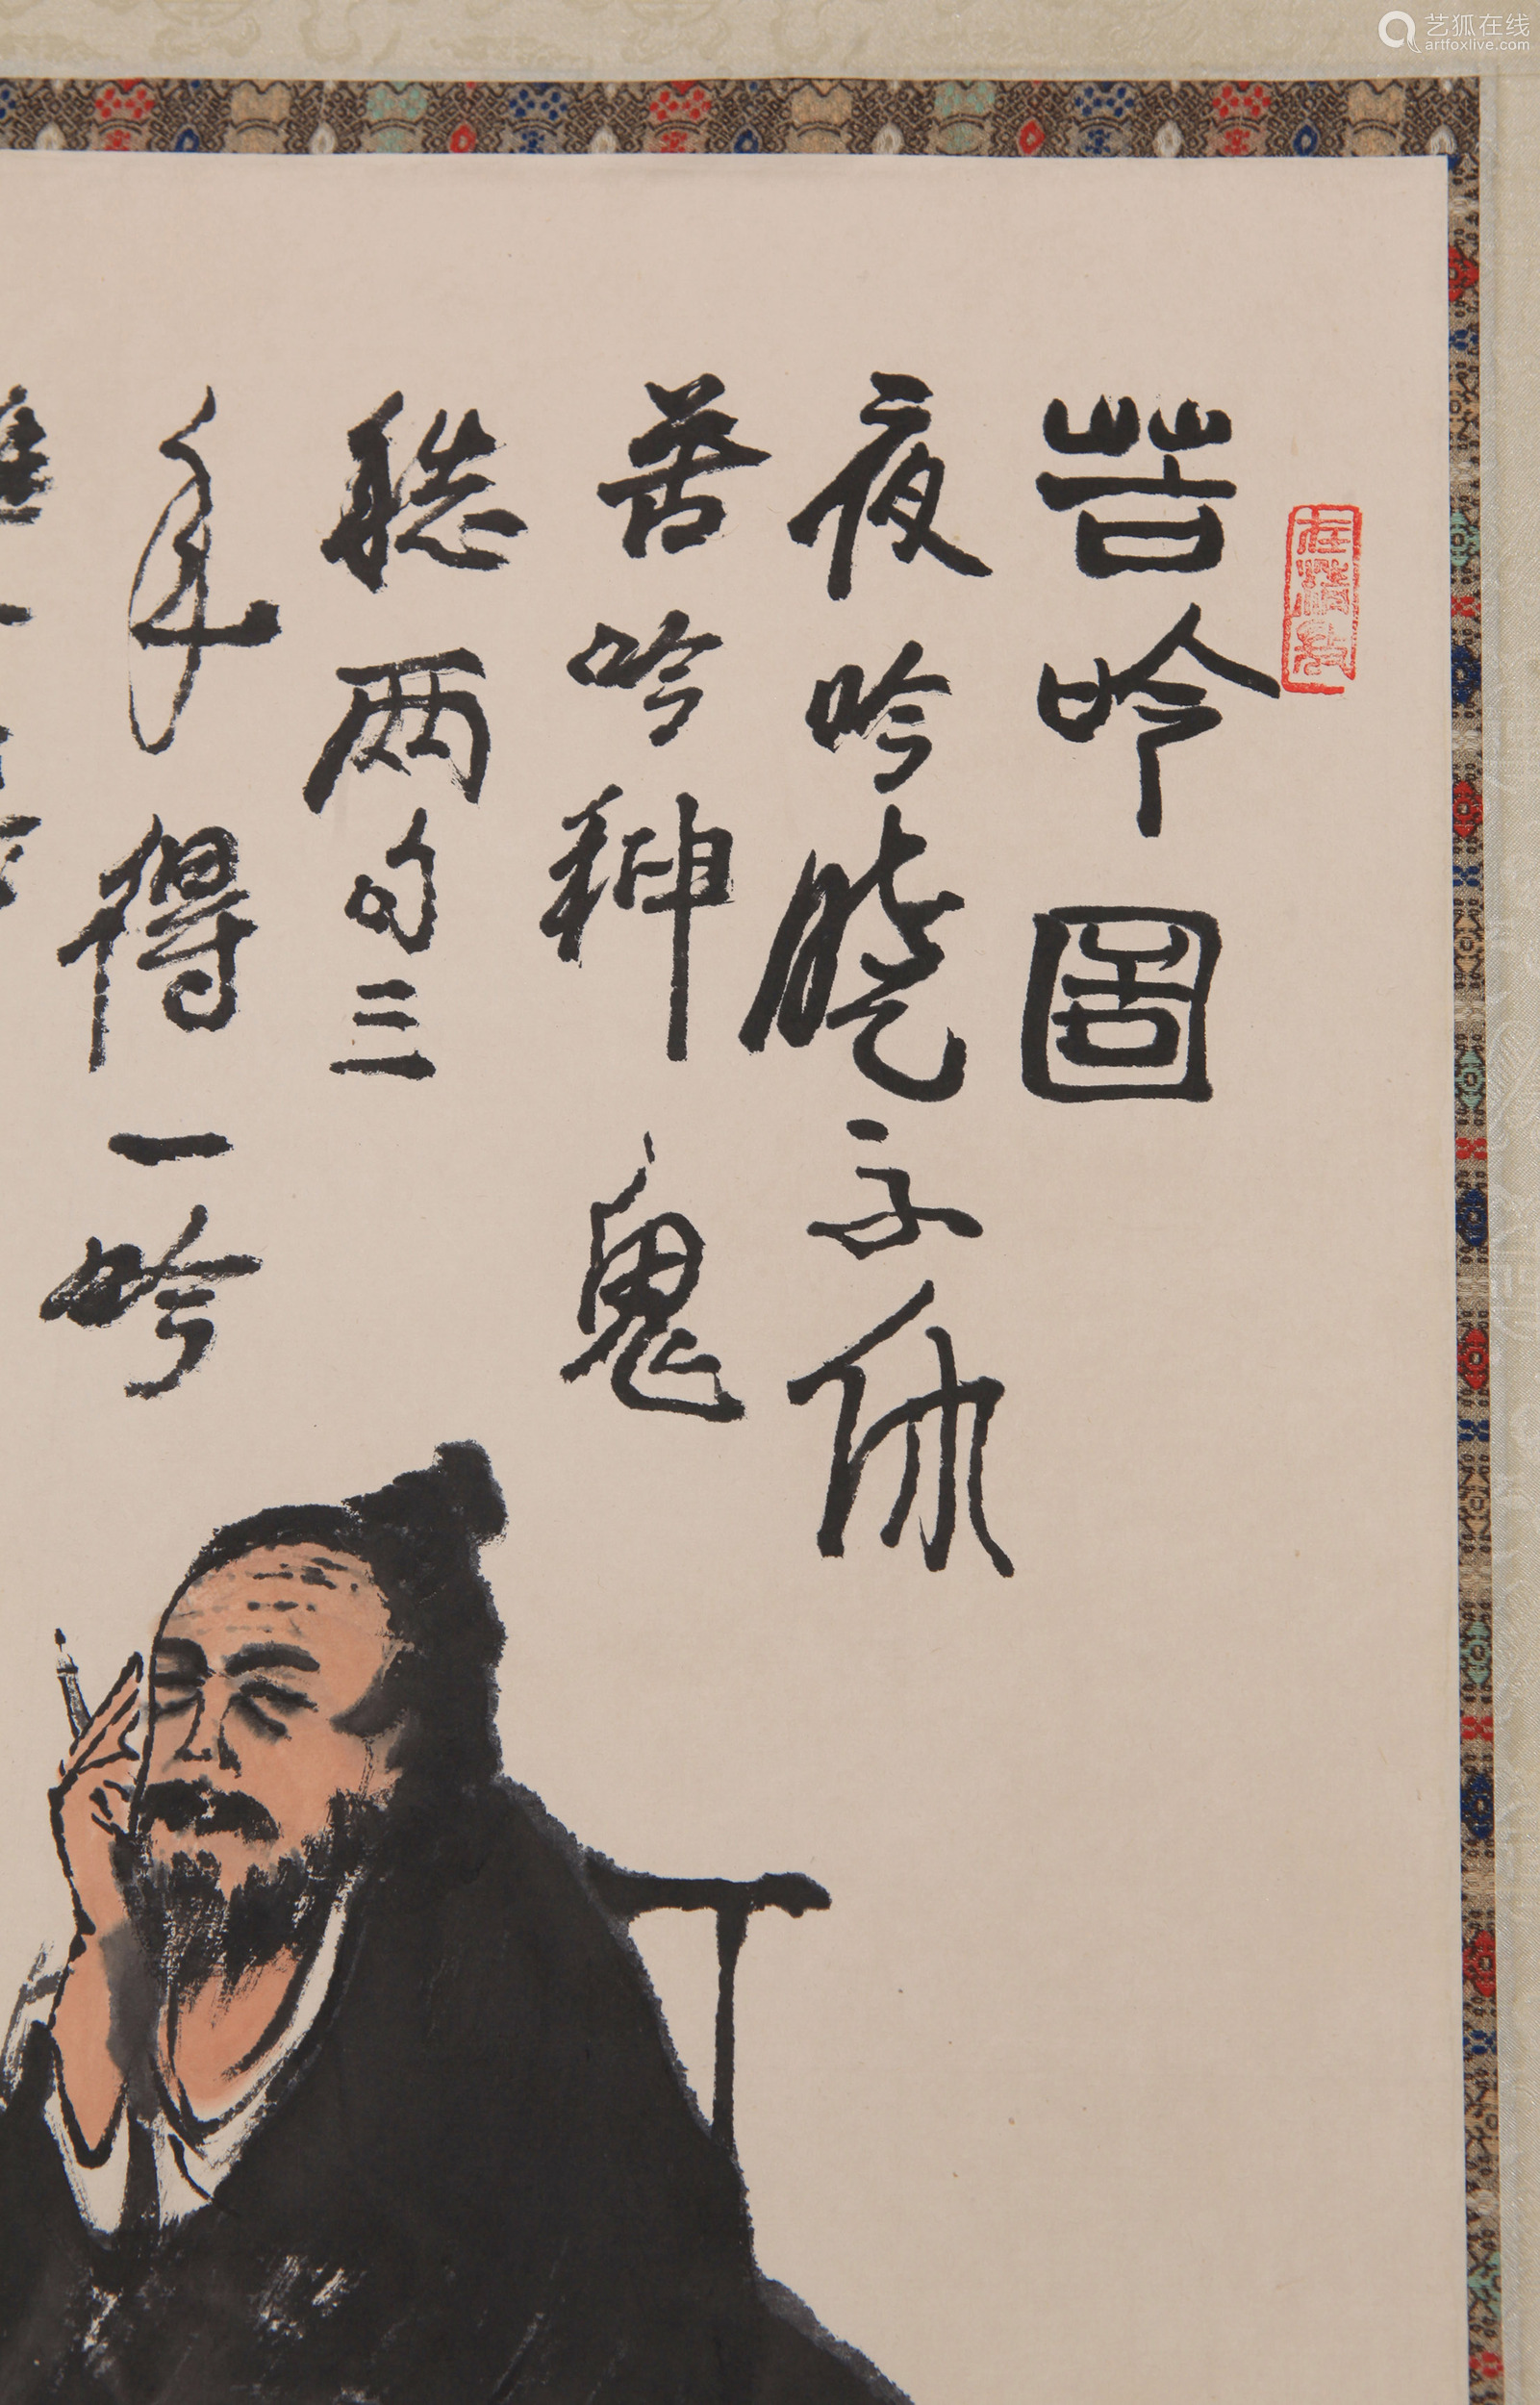 苦吟图
夜吟晓不休
苦吟神鬼
聪两句三
年得一吟
艺狐在线
artfoxlive.com